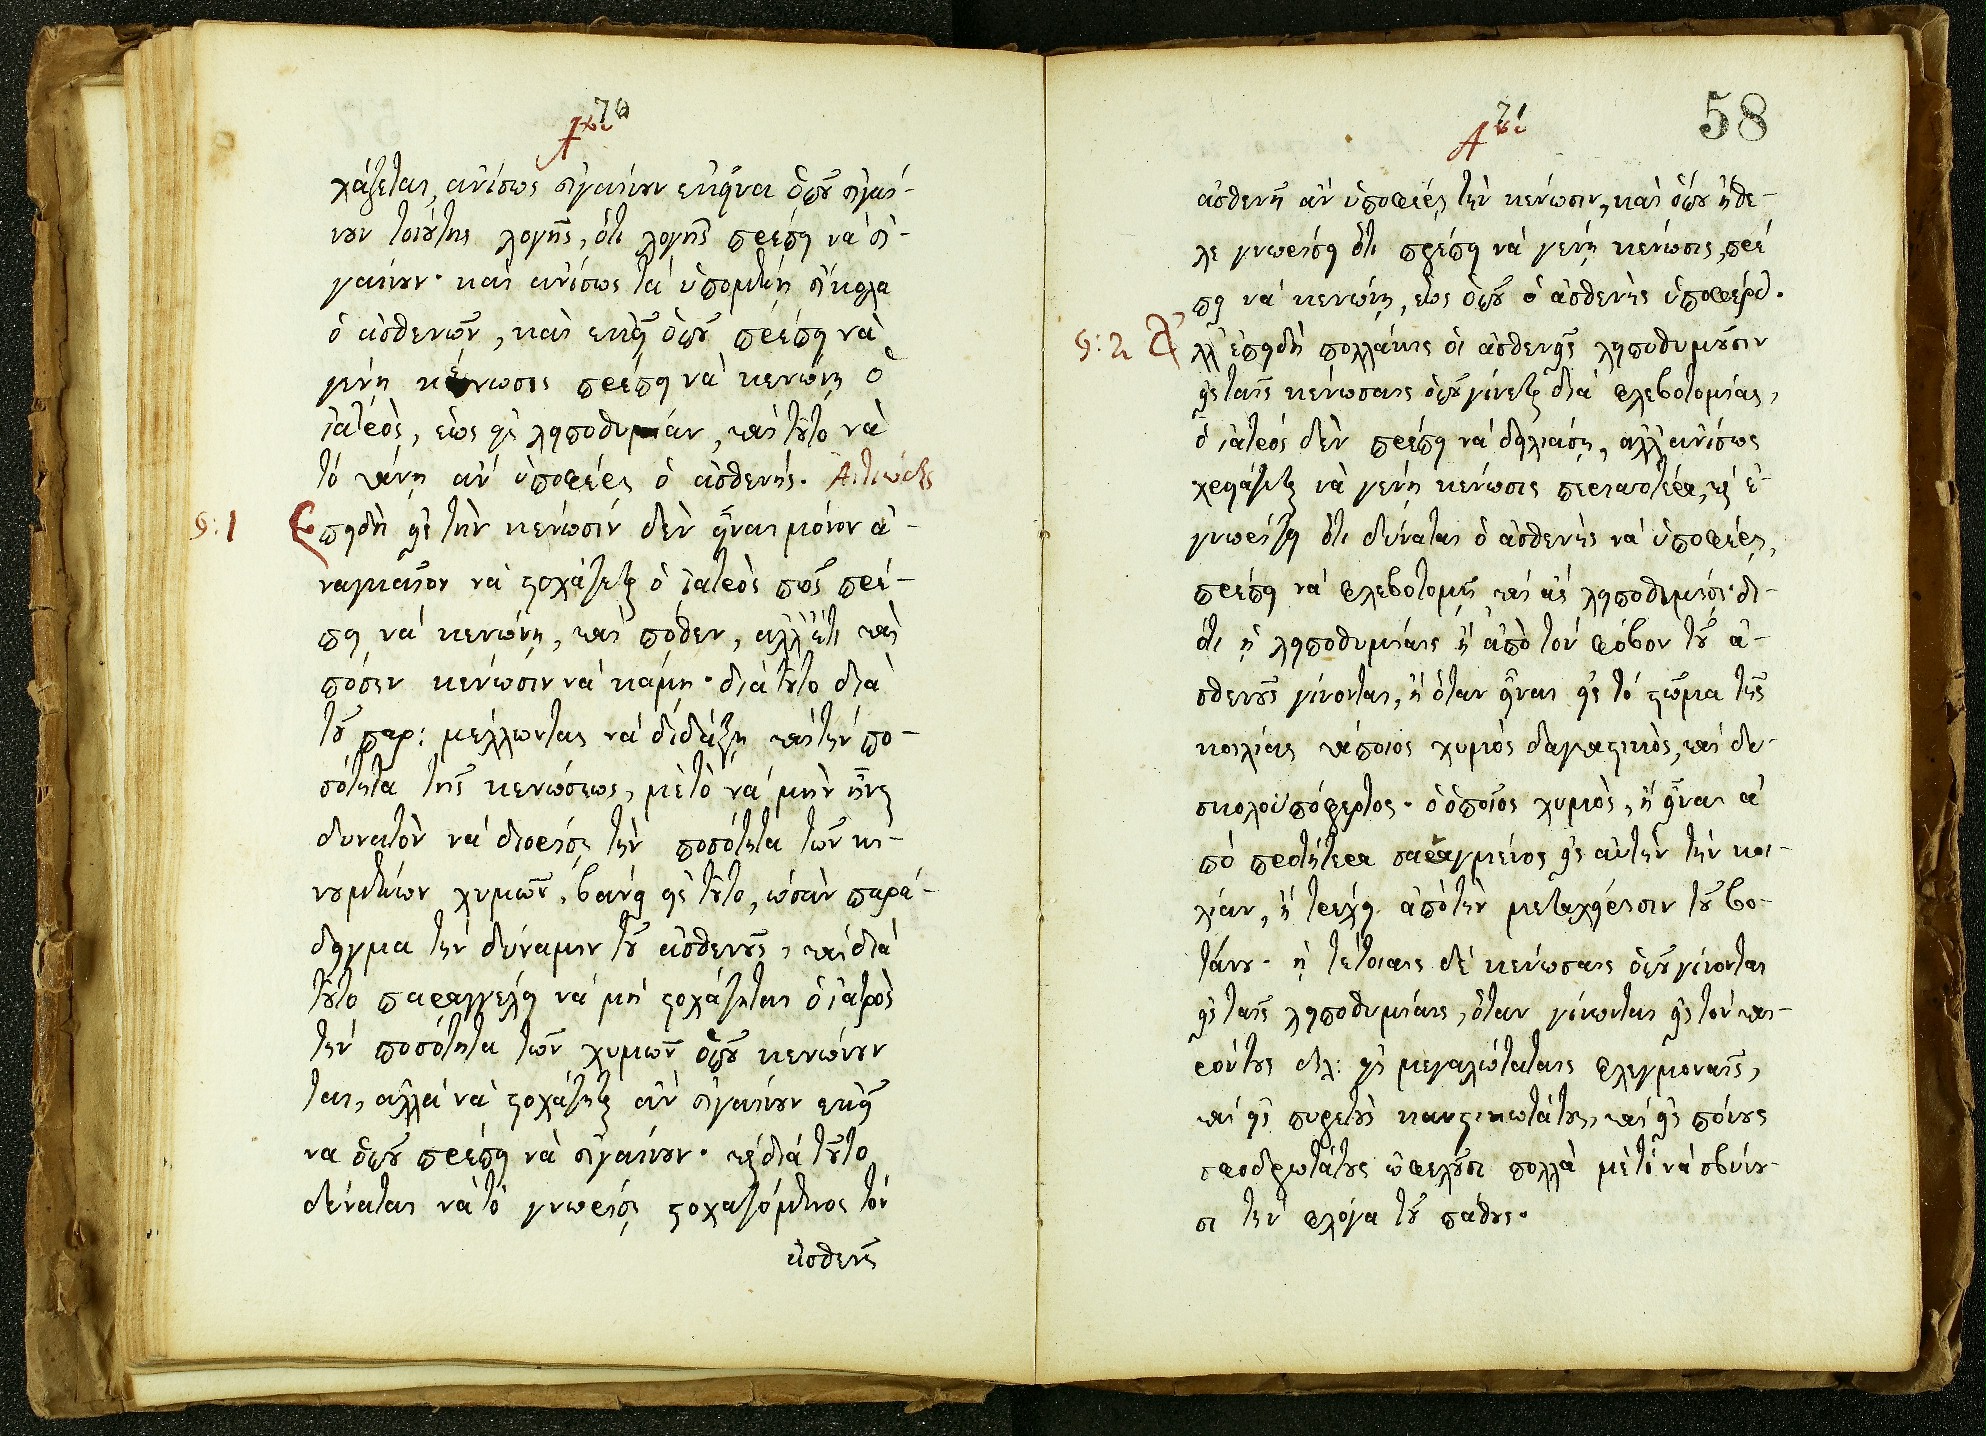 70
χάζεται, ἀνίσως σιγαίνουν ἐκεῖνα ὁποῦ σιγαί-
νουν τοιούτης λογῆς, ὅτι λογῆς πρέπει νὰ σι-
γαίνουν· καὶ ἀνίσως τὰ ὑπομένῃ εὔκολα
ὁ ἀσθενῶν, καὶ ἐκεῖ ὁποῦ πρέπει νὰ
γένῃ κένωσις πρέπει νὰ κενώνῃ ὁ
ἰατρὸς, ἕως εἰς ληποθυμίαν, καὶ τοῦτο νὰ
τὸ κάνῃ ἂν ὑποφέρει ὁ ἀσθενής.
§: 1 Ἐπειδὴ εἰς τὴν κένωσιν δὲν εἶναι μόνον ἀ-
ναγκαῖον νὰ στοχάζεται ὁ ἰατρὸς πῶς πρέ-
πει νὰ κενώνῃ, καὶ πόθεν, ἀλλ' ἔτι καὶ
πόσην κένωσιν νὰ κάμῃ· διὰ τοῦτο διὰ
τοῦ παρ: μέλλωντας νὰ διδάξῃ καὶ τὴν πο-
σότητα τῆς κενώσεως, μὲ τὸ νὰ μὴν ἦναι
δυνατὸν νὰ διορίσει τὴν ποσότητα τῶν κε-
νουμένων χυμῶν, βάνει εἰς τοῦτο, ὡσὰν παρά-
δειγμα τὴν δύναμιν τοῦ ἀσθενοῦς, καὶ διὰ
τοῦτο παραγγέλει νὰ μὴ στοχάζηται ὁ ἰατρὸς
τὴν ποσότητα τῶν χυμῶν ὁποῦ κενώνουν
ται, ἀλλὰ νὰ στοχάζεται ἂν σιγαίνουν ἐκεῖ
να ὁποῦ πρέπει νὰ σιγαίνουν· καὶ διὰ τοῦτο
δύναται νὰ τὸ γνωρίσει στοχαζόμενος τὸν
ἀσθενῆ
71
58
ἀσθενῆ ἂν ὑποφέρει τὴν κένωσιν, καὶ ὁποῦ ἤθε-
λε γνωρίσῃ ὅτι πρέπει νὰ γένῃ κένωσις, πρέ
πει νὰ κενώνῃ, ἕως ὁποῦ ὁ ἀσθενὴς ὑποφέρει.
§: 2 Ἀλλ' ἐπειδὴ πολλάκις οἱ ἀσθενεῖς ληποθυμοῦσιν
εἰς ταῖς κένωσαις ὁποῦ γίνεται διὰ φλεβοτομίας,
ὁ ἰατρὸς δὲν πρέπει νὰ δηλιάσῃ, ἀλλ' ἀνίσως
χρειάζεται νὰ γένῃ κένωσις περισσοτέρα, καὶ ἐ-
γνωρίζῃ ὅτι δύναται ὁ ἀσθενὴς νὰ ὑποφέρει,
πρέπει νὰ φλεβοτομῇ καὶ ἂς ληποθυμήσει· δι-
ότι ἡ ληποθυμίαις ἢ ἀπὸ τὸν φόβον τοῦ ἀ-
σθενοῦς γίνονται, ἢ ὅταν εἶναι εἰς τὸ στῶμα τῆς
κοιλίας κάποιος χυμὸς δαγκαστικὸς, καὶ δυ-
σκολοϋπόφερτος· ὁ ὁποῖος χυμὸς, ἢ εἶναι ἀ
πὸ προτήτερα σαραγμένος εἰς αὐτὴν τὴν κοι-
λίαν, ἢ τρέχει ἀπὸ τὴν μεταχείρισιν τοῦ βο-
τάνου· ἡ τέτοιαις δὲ κένωσαις ὁποῦ γίνονται
εἰς ταῖς ληποθυμίαις, ὅταν γίνωνται εἰς τοὺς και-
ροὺς τους δηλ: εἰς μεγαλώταταις φλεγμοναῖς,
καὶ εἰς πυρετοὺς καυστικωτάτους, καὶ εἰς πόνους
σφοδρωτάτους ὠφελοῦσι πολλὰ μὲ τὸ νὰ σβύνου-
σι τὴν φλόγα τοῦ πάθους.